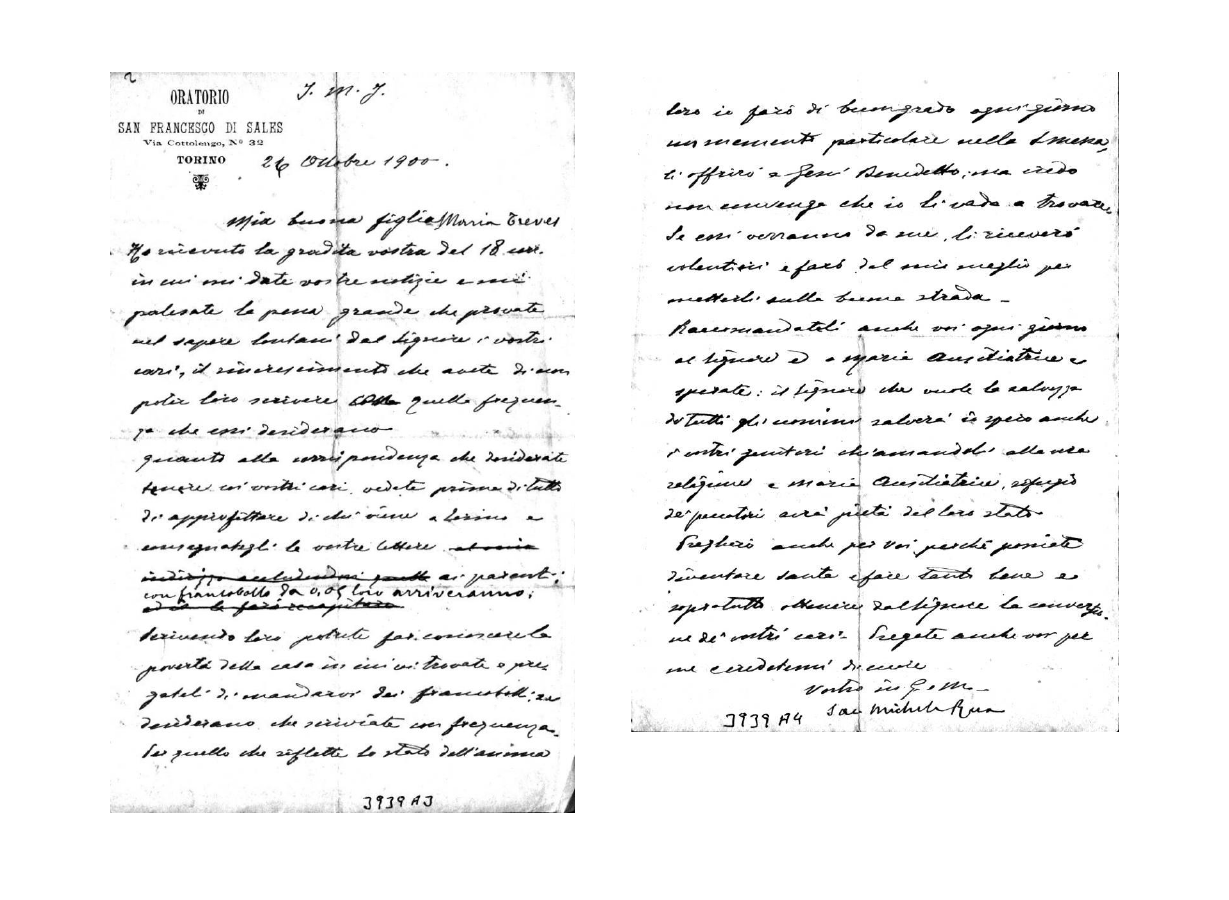 2
ORATORIO
DI
SAN FRANCESCO DI SALES
Via Cottolengo, Nº 32
TORINO
J. M. J.
26 Ottobre 1900.
Mia buona figlia Maria Treves
Ho ricevuto la gradita vostra del 18 corr.
in cui mi date vostre notizie e mi
palesate la pena grande che provate
nel sapere lontani dal Signore i vostri
cari, il rincrescimento che avete di non
poter loro scrivere con quella frequen-
za che essi desiderano
Quanto alla corrispondenza che desiderate
tenere coi vostri cari, vedete prima di tutto
di approfittare di chi viene a Torino e
consegnategli le vostre lettere
ai parenti;
con francobollo da 0,05 loro arriveranno;
Scrivendo loro potrete far conoscere la
povertà della casa in cui vi trovate e pre-
gateli di mandarvi dei francobolli, se
desiderano che scriviate con frequenza.
Per quello che riflette lo stato dell'anima
3939 A3
loro io farò di buon grado ogni giorno
un memento particolare nella S. Messa,
li offrirò a Gesù Benedetto; ma credo
non convenga che io li vada a trovare.
Se essi verranno da me, li riceverò
volentieri e farò del mio meglio per
metterli sulla buona strada -
Raccomandateli anche voi ogni giorno
al Signore ed a Maria Ausiliatrice e
sperate: il Signore che vuole la salvezza
di tutti gli uomini salverà io spero anche
i vostri genitori chiamandoli alla vera
religione e Maria Ausiliatrice, rifugio
de' peccatori avrà pietà del loro stato
Pregherò anche per voi perché possiate
diventare santa e fare tanto bene e
sopratutto ottenere dal Signore la conversio-
ne de' vostri cari. Pregate anche voi per
me e credetemi di cuore
Vostro in G. e M.
Sac. Michele Rua
3939 A4